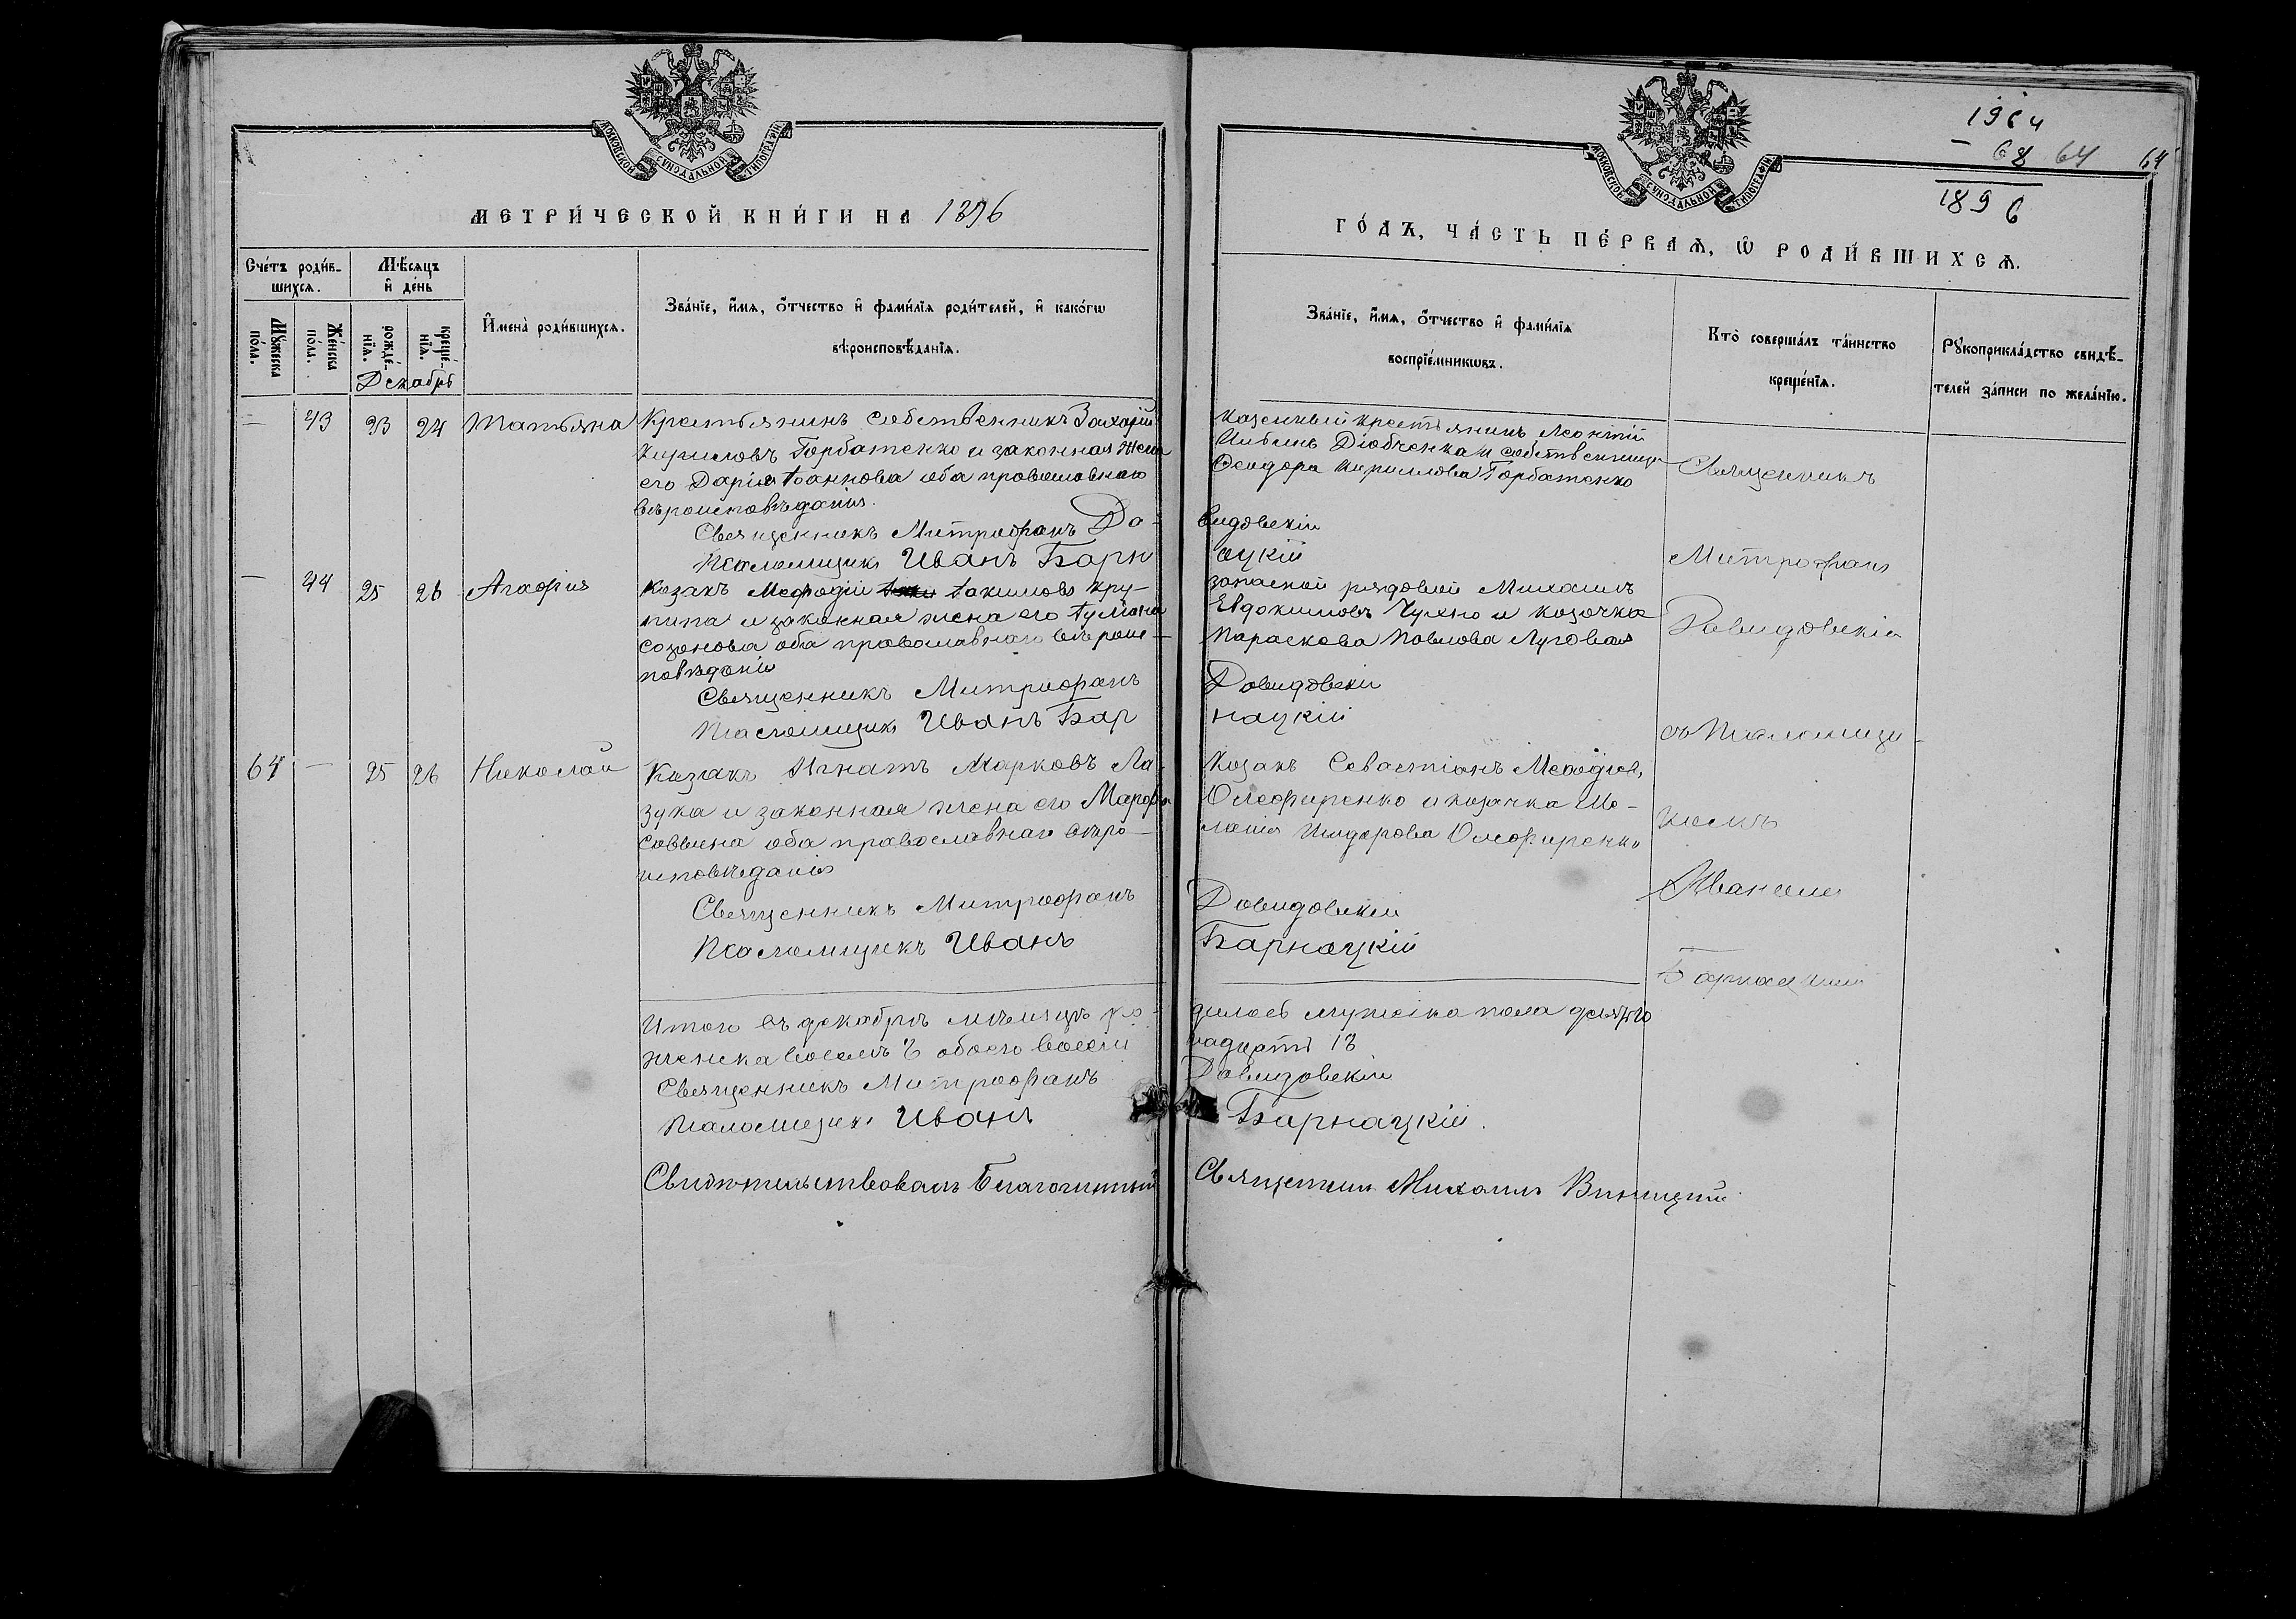 МОСКОВСКОЙ СѴНОДАЛЬНОЙ ТИПОГРАФІИ
МЕТРИ́ЧЕСКОЙ КНИ́ГИ НА 1896
Сче́тъ роди́в-
шихсѧ.
Мѣ́сѧцъ
и҆ де́нь
Мꙋ́жеска
по́ла.
Же́нска
по́ла.
рожде́-
нїѧ.
креще́-
нїѧ.
Декабрь
И҆мена̀ роди́вшихсѧ.
Зва́нїе, и҆́мѧ, ѻ҆́тчество и҆ фами́лїѧ роди́телей, и҆ како́гѡ
вѣроисповѣ́данїѧ.
— 43 23 24 Татьяна Крестьянинъ собственникъ Захарій
Кириловъ Горбатенко и законная жена
его Дарія Іоаннова оба православнаго
вѣроисповѣданія.
Священникъ Митрофанъ Да-
Псаломщикъ Иванъ Барн
— 44 25 26 Агафія Козакъ Мефодій Іакимовъ Кру-
пипа и законная жена его Іуліана
Созонова оба православнаго вѣроис-
повѣданія
Священникъ Митрофанъ
Псаломщикъ Иванъ Бар
64 — 25 26 Николай Козакъ Игнатъ Марковъ Ла-
зука и законная жена его Марфа
Саввина оба православнаго вѣро-
исповѣданія
Священникъ Митрофанъ
Псаломщикъ Иванъ
Итого въ декабрѣ мѣсяцѣ ро-
женска восемь 8 обоего восем
Священникъ Митрофанъ
Псаломщикъ Иванъ
Свидѣтельствовалъ Благочинный
1964
— 68 64 64
1896
МОСКОВСКОЙ СѴНОДАЛЬНОЙ ТИПОГРАФІИ
ГО́ДЪ, ЧА́СТЬ ПЕ́РВАѦ, Ѡ҆ РОДИ́ВШИХСѦ.
Зва́нїе, и҆́мѧ, ѻ҆́тчество и҆ фами́лїѧ
воспрїе́мникѡвъ.
Кто̀ соверша́лъ та́инство
креще́нїѧ.
Рꙋкоприкла́дство свидѣ́-
телей за́писи по жела́нїю.
Казенный крестьянинъ Леонтій
Діобченка и собственница
Ѳеодора Кириллова Горбатенко
видовскій
ацкій
запасной рядовой Михаилъ
Евдокимовъ Чухно и козачка
Параскева Павлова Луговая
Давидовскій
нацкій
Козакъ Севастіанъ Меѳодіевъ
Олефиренко и козачка Ме-
ланія Исидорова Олефиренко
Давидовскій
Барнацкій
Священникъ
Митрофанъ
Давидовскій
съ Псаломщи-
комъ
Иваномъ
Барнацкимъ
дилось мужеска пола десять 10
надцать 18
Давидовскій
Барнацкій.
Священникъ Михаилъ Виницкій